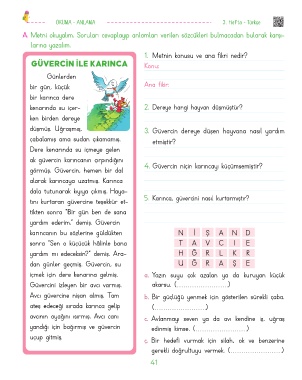 OKUMA - ANLAMA
3. Hafta - Türkçe
A Metni okuyalım. Soruları cevaplayıp anlamları verilen sözcükleri bulmacadan bularak karşı-
larına yazalım.
GÜVERCİN İLE KARINCA
Günlerden
bir gün, küçük
bir karınca dere
kenarında su içer-
ken birden dereye
düşmüş. Uğraşmış,
çabalamış ama sudan çıkamamış.
Dere kenarında su içmeye gelen
ak güvercin karıncanın çırpındığını
görmüş. Güvercin, hemen bir dal
alarak karıncaya uzatmış. Karınca
dala tutunarak kıyıya çıkmış. Haya-
tını kurtaran güvercine teşekkür et-
tikten sonra "Bir gün ben de sana
yardım ederim." demiş. Güvercin
karıncanın bu sözlerine güldükten
sonra "Sen o küçücük hâlinle bana
yardım mı edeceksin?" demiş. Ara-
dan günler geçmiş. Güvercin, su
içmek için dere kenarına gelmiş.
Güvercini izleyen bir avcı varmış.
Avcı güvercine nişan almış. Tam
ateş edeceği sırada karınca gelip
avcının ayağını ısırmış. Avcı canı
yandığı için bağırmış ve güvercin
uçup gitmiş.
1. Metnin konusu ve ana fikri nedir?
Konu:
Ana fikri:
2. Dereye hangi hayvan düşmüştür?
3. Güvercin dereye düşen hayvana nasıl yardım
etmiştir?
4. Güvercin niçin karıncayı küçümsemiştir?
5. Karınca, güvercini nasıl kurtarmıştır?
N İ Ş A N D
T A V C I E
H Ğ R L K R
U Ğ R A Ş E
a. Yazın suyu çok azalan ya da kuruyan küçük
akarsu. (........................)
b. Bir güçlüğü yenmek için gösterilen sürekli çaba.
(........................)
c. Avlanmayı seven ya da avı kendine iş, uğraş
edinmiş kimse. (........................)
ç. Bir hedefi vurmak için silah, ok ve benzerine
gerekli doğrultuyu vermek. (........................)
41